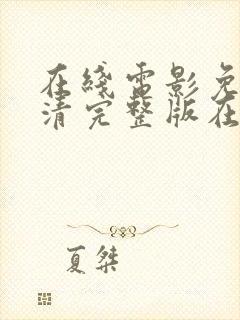 在线电影免
清完整版在
夏桀